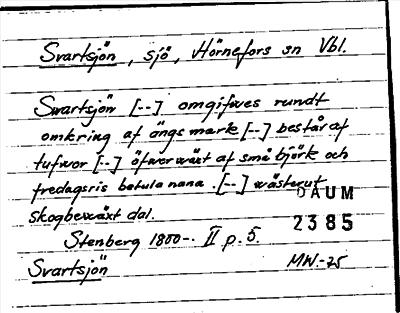 Svartsjön, sjö, Hörnefors sn Vbl.
Swartsjön [--] omgifwes rundt
omkring af ängsmark [--] består af
tufwor [--] öfwerwäxt af små björk och
fredagsris betula nana. [--] wästerut
skogbewäxt dal.
DAUM
2385
Stenberg 1800-. II p. 5.
Svartsjön
MW.-75